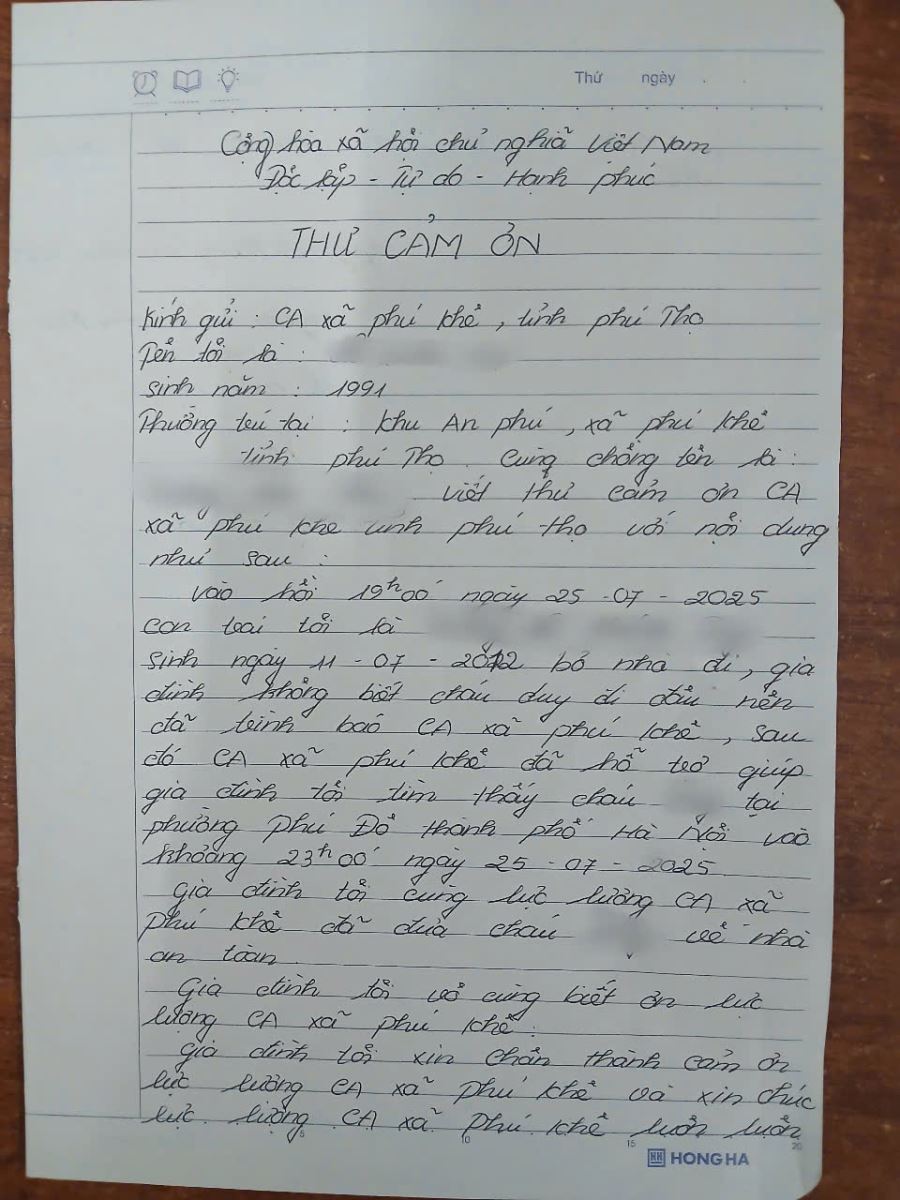 Thứ ngày . .
Cộng hòa xã hội chủ nghĩa Việt Nam
Độc lập - Tự do - Hạnh phúc
THƯ CẢM ƠN
Kính gửi : CA xã phú khê , tỉnh phú Thọ
Tên tôi là :
sinh năm : 1991
Thường trú tại : khu An phú , xã phú khê
tỉnh phú Thọ . Cùng chồng tên là :
viết thư cảm ơn CA
xã phú khê tỉnh phú thọ với nội dung
như sau :
vào hồi 19h00 ngày 25 - 07 - 2025
con trai tôi là
sinh ngày 11 - 07 - 2012 bỏ nhà đi , gia
đình không biết cháu duy đi đâu nên
đã trình báo CA xã phú khê , sau
đó CA xã phú khê đã hỗ trợ giúp
gia đình tôi tìm thấy cháu tại
phường Phú Đô thành phố Hà Nội vào
khoảng 23h00 ngày 25 - 07 - 2025
Gia đình tôi cùng lực lượng CA xã
Phú khê đã đưa cháu về nhà
an toàn
Gia đình tôi vô cùng biết ơn lực
lượng CA xã phú khê .
Gia đình tôi xin chân thành cảm ơn
lực lượng CA xã phú khê và xin chúc
lực lượng CA xã Phú khê luôn luôn
5 10 15 20
HH HONG HA